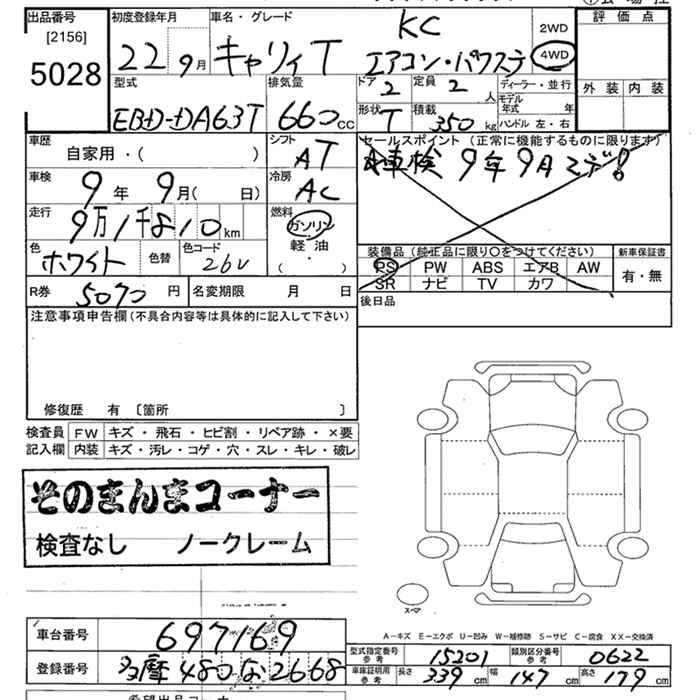 出品番号 初度登録年月 車名・グレード KC 2WD 評価点
[2156]
5028 22 9月 キャリイT エアコン・パワステ 4WD
型式 排気量 ドア 2 定員 2人 ディーラー・並行 外装 内装
EBD-DA63T 660cc 形状 T 積載 350kg モデル年式 年
ハンドル 左・右
車歴 シフト セールスポイント (正常に機能するものに限ります)
自家用・( ) AT 車検 9年9月マデ!
車検 冷房
9年 9月( 日) AC
走行 燃料
9万1千810km ガソリン
色 色替 色コード 軽油 装備品 (純正品に限り○をつけてください) 新車保証書
ホワイト 26U ・( ) PS PW ABS エアB AW 有・無
SR ナビ TV カワ
R券 5070円 名変期限 月 日 後日品
注意事項申告欄 (不具合内容等は具体的に記入して下さい)
修復歴 有 〔箇所 〕
検査員 FW キズ・飛石・ヒビ割・リペア跡・×要
記入欄 内装 キズ・汚レ・コゲ・穴・スレ・キレ・破レ
そのまんまコーナー
検査なし ノークレーム
スペア
A-キズ E-エクボ U-凹み W-補修跡 S-サビ C-腐食 XX-交換済
車台番号 697169 型式指定番号 参考 15201 類別区分番号 参考 0622
登録番号 多摩 480 な 2668 車庫証明用 参考 長さ 339cm 幅 147cm 高さ 179cm